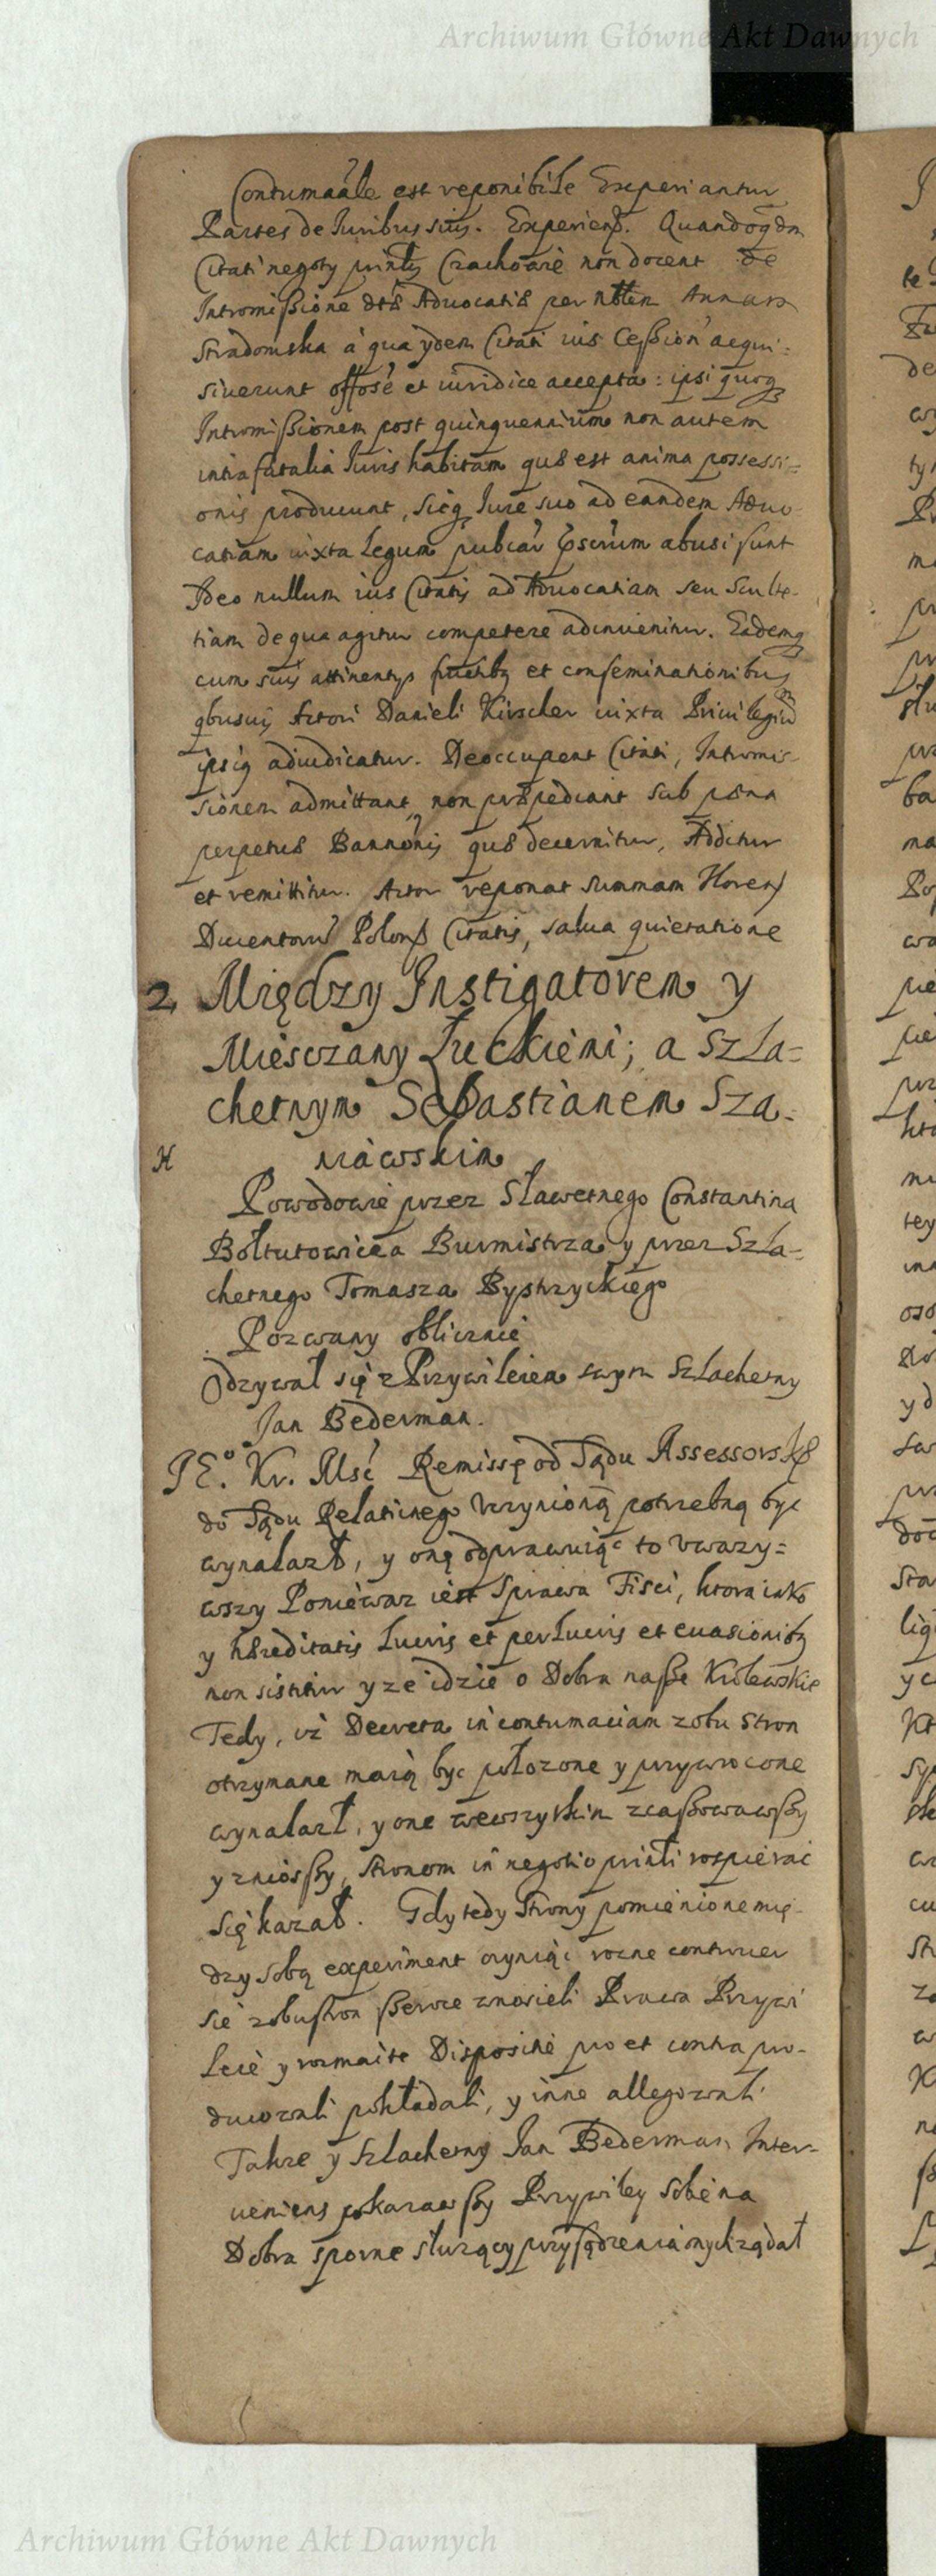 Archiwum Główne Akt Dawnych
Contumaciale est reponibile Experiantur
Partes de Iuribus suis. Experient. Quandoqdm
Citati negoty printis non docent de
Intromissione Advocatiæ per Nblem Annam
Stradomska à qua ijdem Citati ius Cession acqui:
siuerunt et iuridice accepta: ipsi quoq
Intromissionem post quinquennium non autem
intra fatalia Iuris habitam quæ est anima possessi=
onis producunt, sicq Iure suo ad eandem Aduo-
catiam iuxta Legum abusi sunt
Ideo nullum ius Citatis ad Aduocatiam seu Sculte-
tiam de qua agitur competere adinuenitur. Eademq
cum suis attinentys et conseminationibus
qbusuis Actori Danieli Kirscher iuxta Priuilegiu
ipsig adiudicatur. Deoccupent Citati, Intromis-
sionem admittant, non præpediant sub pæna
perpetuæ Bannonis quæ decernitur, Additur
et remittitur. Actor reponat summam Floren
Ducentoru Polon Citatis, salua quietatione
2, Między Instigatorem y
Miesczany Łuckiemi; a Szla=
chetnym Sebastianem Sza-
niawskim
Powodowie przez Sławetnego Constantina
Bołtutowicza Burmistrza y przez Szla=
chetnego Tomasza Bystrzyckiego
Pozwany oblicznie
Odzywał się z Przywileiem swym Szlachetny
Jan Bederman.
JE.º Kr. Mść Remissę od Sądu Assessorskº
do Sądu Relatinego Vczynioną potrzebną byc
wynalazł, y onę odprawuiąc to Vwazy=
wszy Poniewaz iest Sprawa Fisci, ktora iako
y hæreditatis Lucris et perlucris et euasionibq
non sistitur y ze idzie o Dobra nasze Krolewskie
Tedy, iz Decreta in contumaciam z obu Stron
otrzymane maią byc położone y przywrocone
wynalazł, y one wewszytkim zcassowawszy
y zniosszy, Stronom in negotio printi rospierać
się kazał. Gdy tedy Strony pomienione mię-
dzy sobą experiment czyniąc rozne controuer
sie z obu stron szeroce wnosieli Prawa Przywi
leie y rozmaite Disposicie pro et contra pro-
ducowali pokładali, y inne allegowali
Takze y Szlachetny Jan Bederman Inter=
ueniens pokazawszy Przywiley sobie na
Dobra sporne służący przysądzenia onych ządał
Archiwum Główne Akt Dawnych